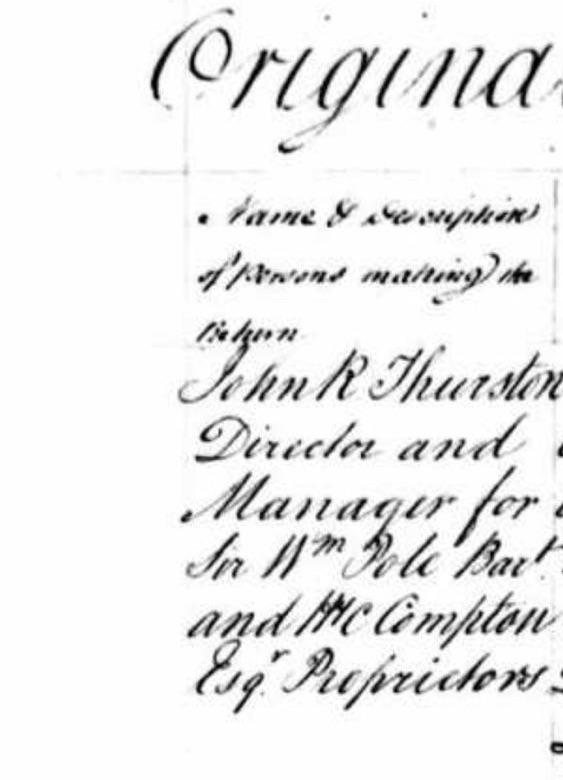 Origina
Name & Description
of Persons making the
Return
John R Thurston
Director and
Manager for
Sir Wm Pole Bart
and HC Compton
Esqr Proprietors